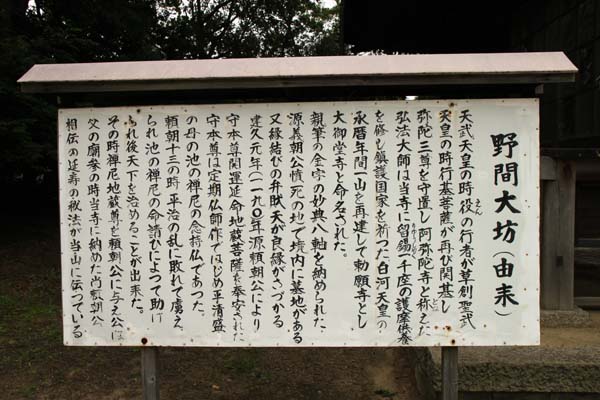 野間大坊(由来)
天武天皇の時役の行者が草創し聖武
えん
天皇の時行基菩薩が再び開基し
弥陀三尊を守置し阿弥陀寺と称えた
弘法大師は当寺に留錫一千座の護摩供養
を修し鎮護国家を祈った白河天皇の
永暦年間一山を再建して勅願寺とし
大御堂寺と命名された。
親筆の金字の妙典八軸を納められた、
源義朝公憤死の地で境内に墓地がある
又縁結びの弁財天が良縁がさづかる
建久元年(一一九〇年源頼朝公により
守本尊開運延命地蔵菩薩を奉安された
守本尊は定朝仏師作ではじめ平清盛
の母の池の禅尼の念持仏であった。
頼朝十三の時平治の乱に敗れて虜え
られ池の禅尼の命請ひによって助け
られ後天下を治めることが出来た。
その時禅尼地蔵尊を頼朝公に与え公は
父の廟参の時当寺に納めた尚頼朝公
相伝の延寿の秘法が当山に伝っている